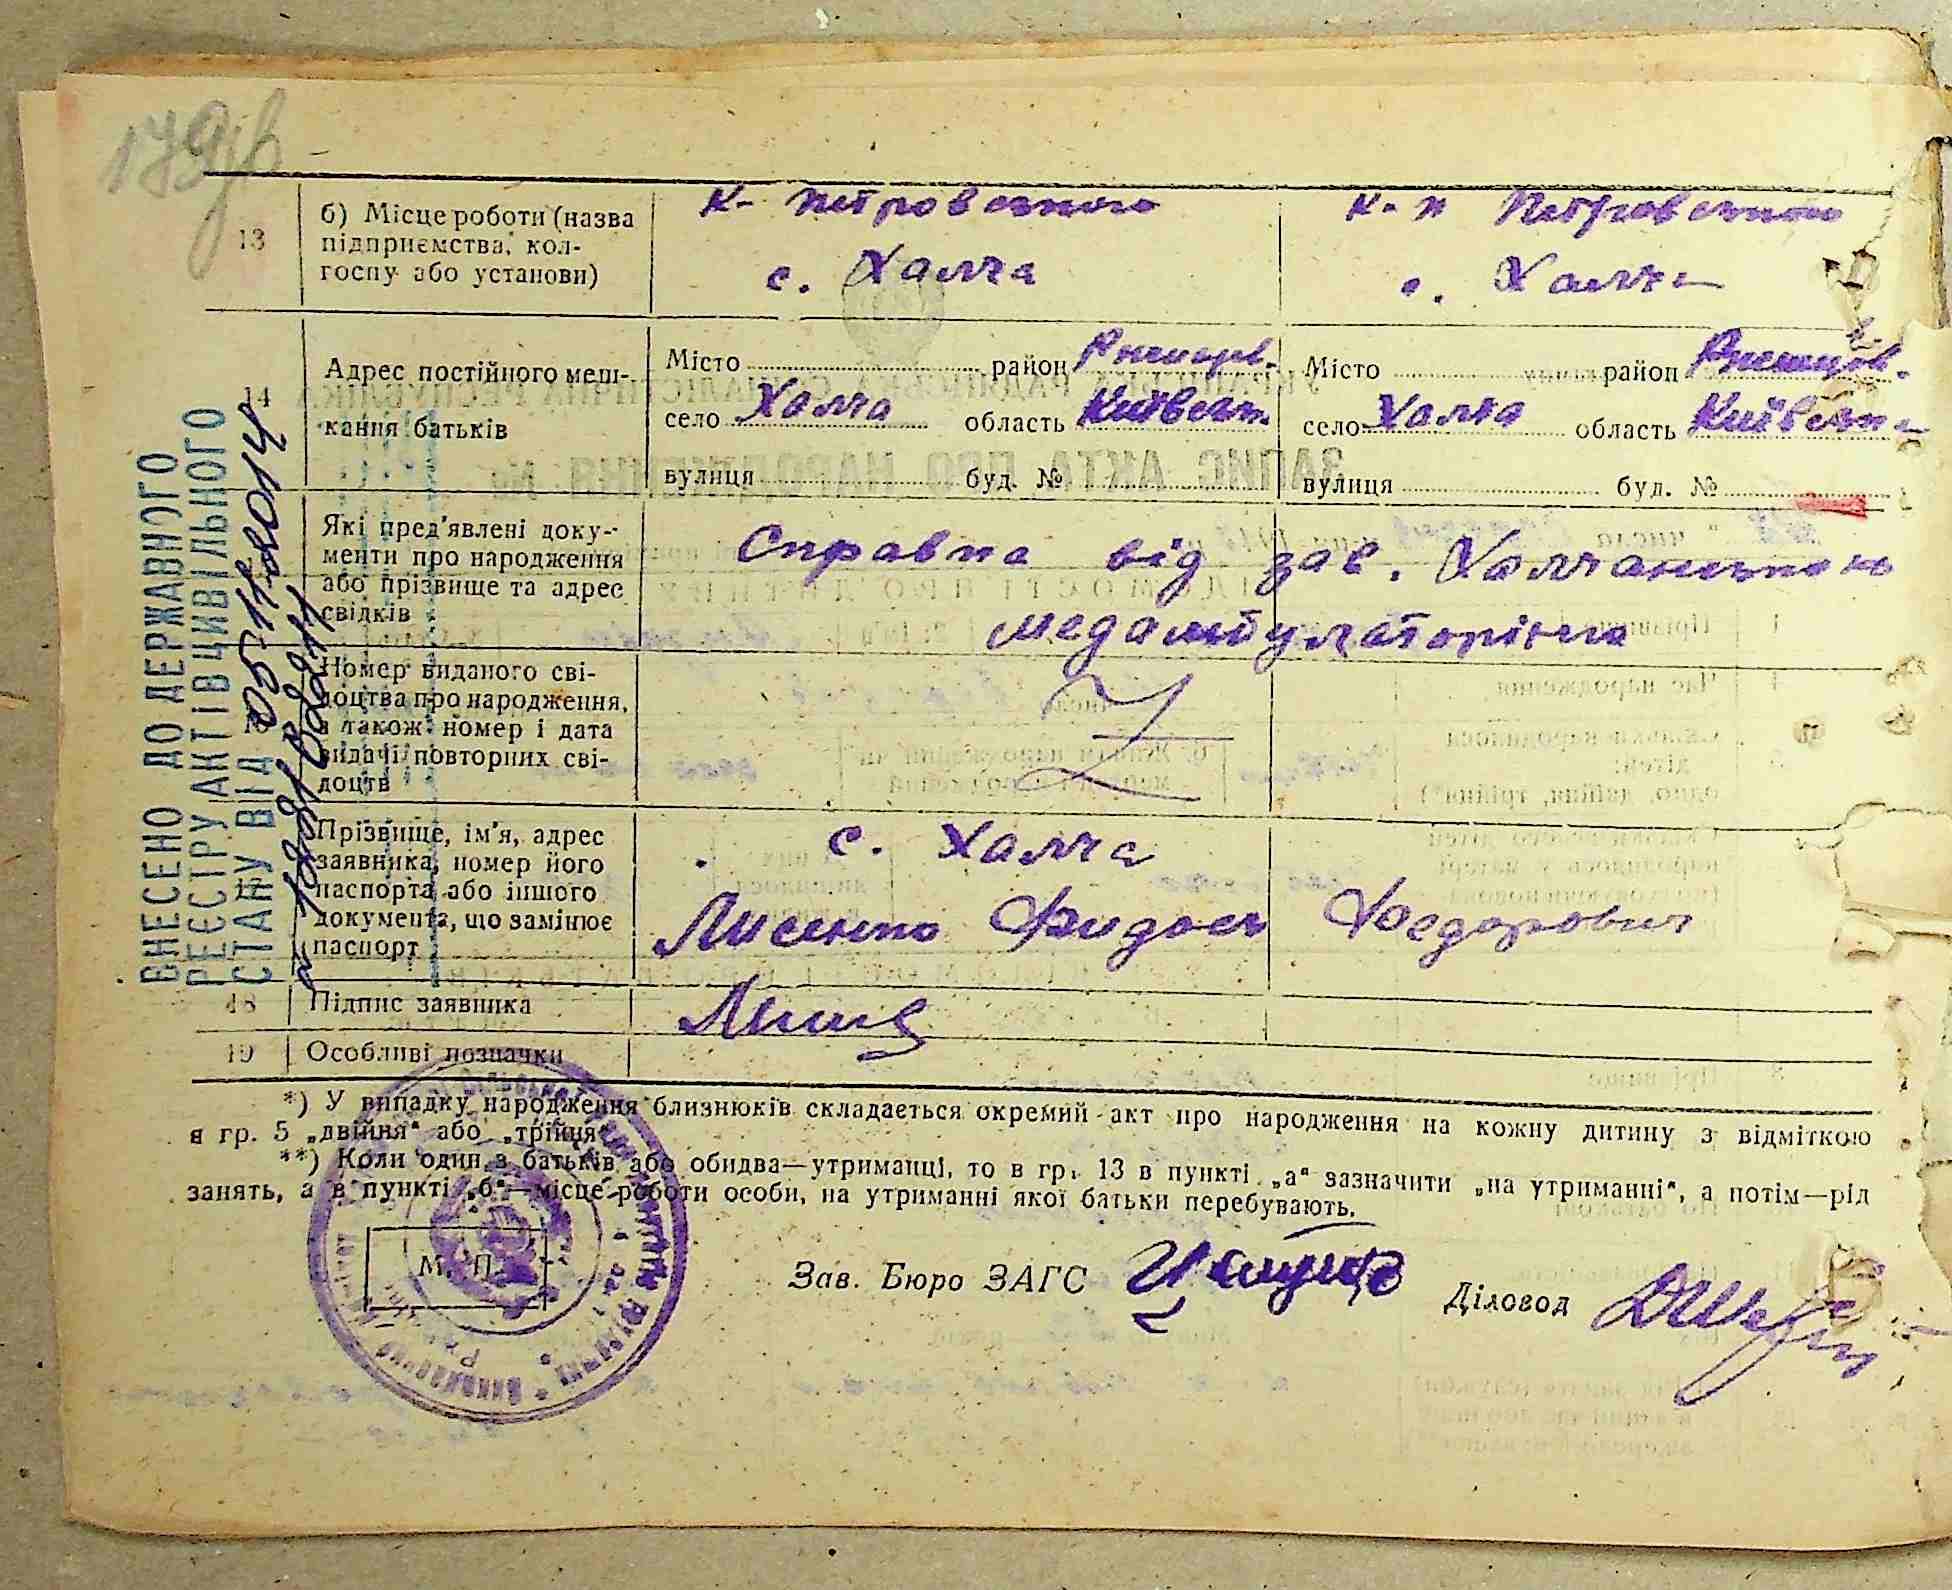 179
13
б) Місце роботи (назва
підприємства, кол-
госпу або установи)
с. Халча
с. Халча
14
Адрес постійного меш-
кання батьків
Місто район
село Халча область Київськ.
вулиця буд. №
Місто район
село Халча область Київськ
вулиця буд. №
Які пред'явлені доку-
менти про народження
або прізвище та адрес
свідків
Справка від зав. Халчанською
медамбулаторією
Номер виданого сві-
доцтва про народження,
а також номер і дата
видачі повторних сві-
доцтв
17
Прізвище, ім'я, адрес
заявника, номер його
паспорта або іншого
документа, що замінює
паспорт
с. Халча
Лисенко Федорович
18 Підпис заявника
19 Особливі позначки
*) У випадку народження близнюків складається окремий акт про народження на кожну дитину з відміткою
в гр. 5 „двійня“ або „трійня“
**) Коли один з батьків або обидва—утриманці, то в гр. 13 в пункті „а“ зазначити „на утриманні“, а потім—рід
занять, а в пункті „б“—місце роботи особи, на утриманні якої батьки перебувають.
М. П.
Зав. Бюро ЗАГС
Діловод
ВНЕСЕНО ДО ДЕРЖАВНОГО
РЕЄСТРУ АКТІВ ЦИВІЛЬНОГО
СТАНУ ВІД 05 11 2014